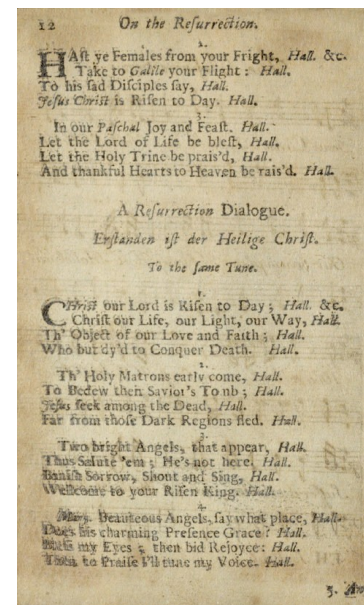 12 On the Reſurrection.
2.
HAſt ye Females from your Fright, Hall. &c.
Take to Galile your Flight: Hall.
To his ſad Diſciples ſay, Hall.
Jeſus Chriſt is Riſen to Day. Hall.
3.
In our Paſchal Joy and Feaſt. Hall.
Let the Lord of Life be bleſt, Hall.
Let the Holy Trine be prais'd, Hall.
And thankful Hearts to Heaven be rais'd. Hall.
A Reſurrection Dialogue.
Erſtanden iſt der Heilige Chriſt.
To the ſame Tune.
1.
CHriſt our Lord is Riſen to Day; Hall. &c.
Chriſt our Life, our Light, our Way, Hall.
Th' Object of our Love and Faith; Hall.
Who but dy'd to Conquer Death. Hall.
2.
Th' Holy Matrons early come, Hall.
To Bedew then Savior's Tomb; Hall.
Jeſus ſeek among the Dead, Hall.
Far from thoſe Dark Regions fled. Hall.
3.
Two bright Angels, that appear, Hall.
Thus Salute 'em; He's not here. Hall.
Baniſh Sorrow, Shout and Sing, Hall.
Wellcome to your Riſen King. Hall.
4.
Mary. Beauteous Angels, ſay what place, Hall.
Does his charming Preſence Grace? Hall.
my Eyes; then bid Rejoyce: Hall.
Then to Praiſe I'll tune my Voice. Hall.
5.